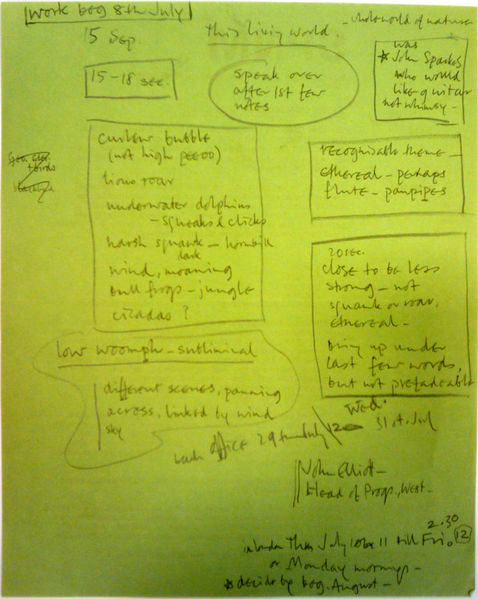 work beg 8th July
15 Sep.
this living world.
underworld of nature
15-18 sec.
speak over
after 1st few
notes
was
John Sparkes
who would
like guitar
not whimsy -
curlew bubble
(not high peeoo)
lions roar
underwater dolphins
- squeaks & clicks
harsh squawk - hornbill
dark
wind, moaning
bull frogs - jungle
cicadas ?
recognisable theme -
ethereal - perhaps
flute - panpipes
20 sec.
close to be less
strong - not
squawk or roar,
ethereal -
bring up under
last few words,
but not prefadeable
low woomph - subliminal
different scenes, panning
across, linked by wind
sky
office 29th July
Wed.
31st July
John Elliot -
Head of Progs, West -
2.30
July 11 till Fri. 12
or Monday mornings -
decide by beg. August -